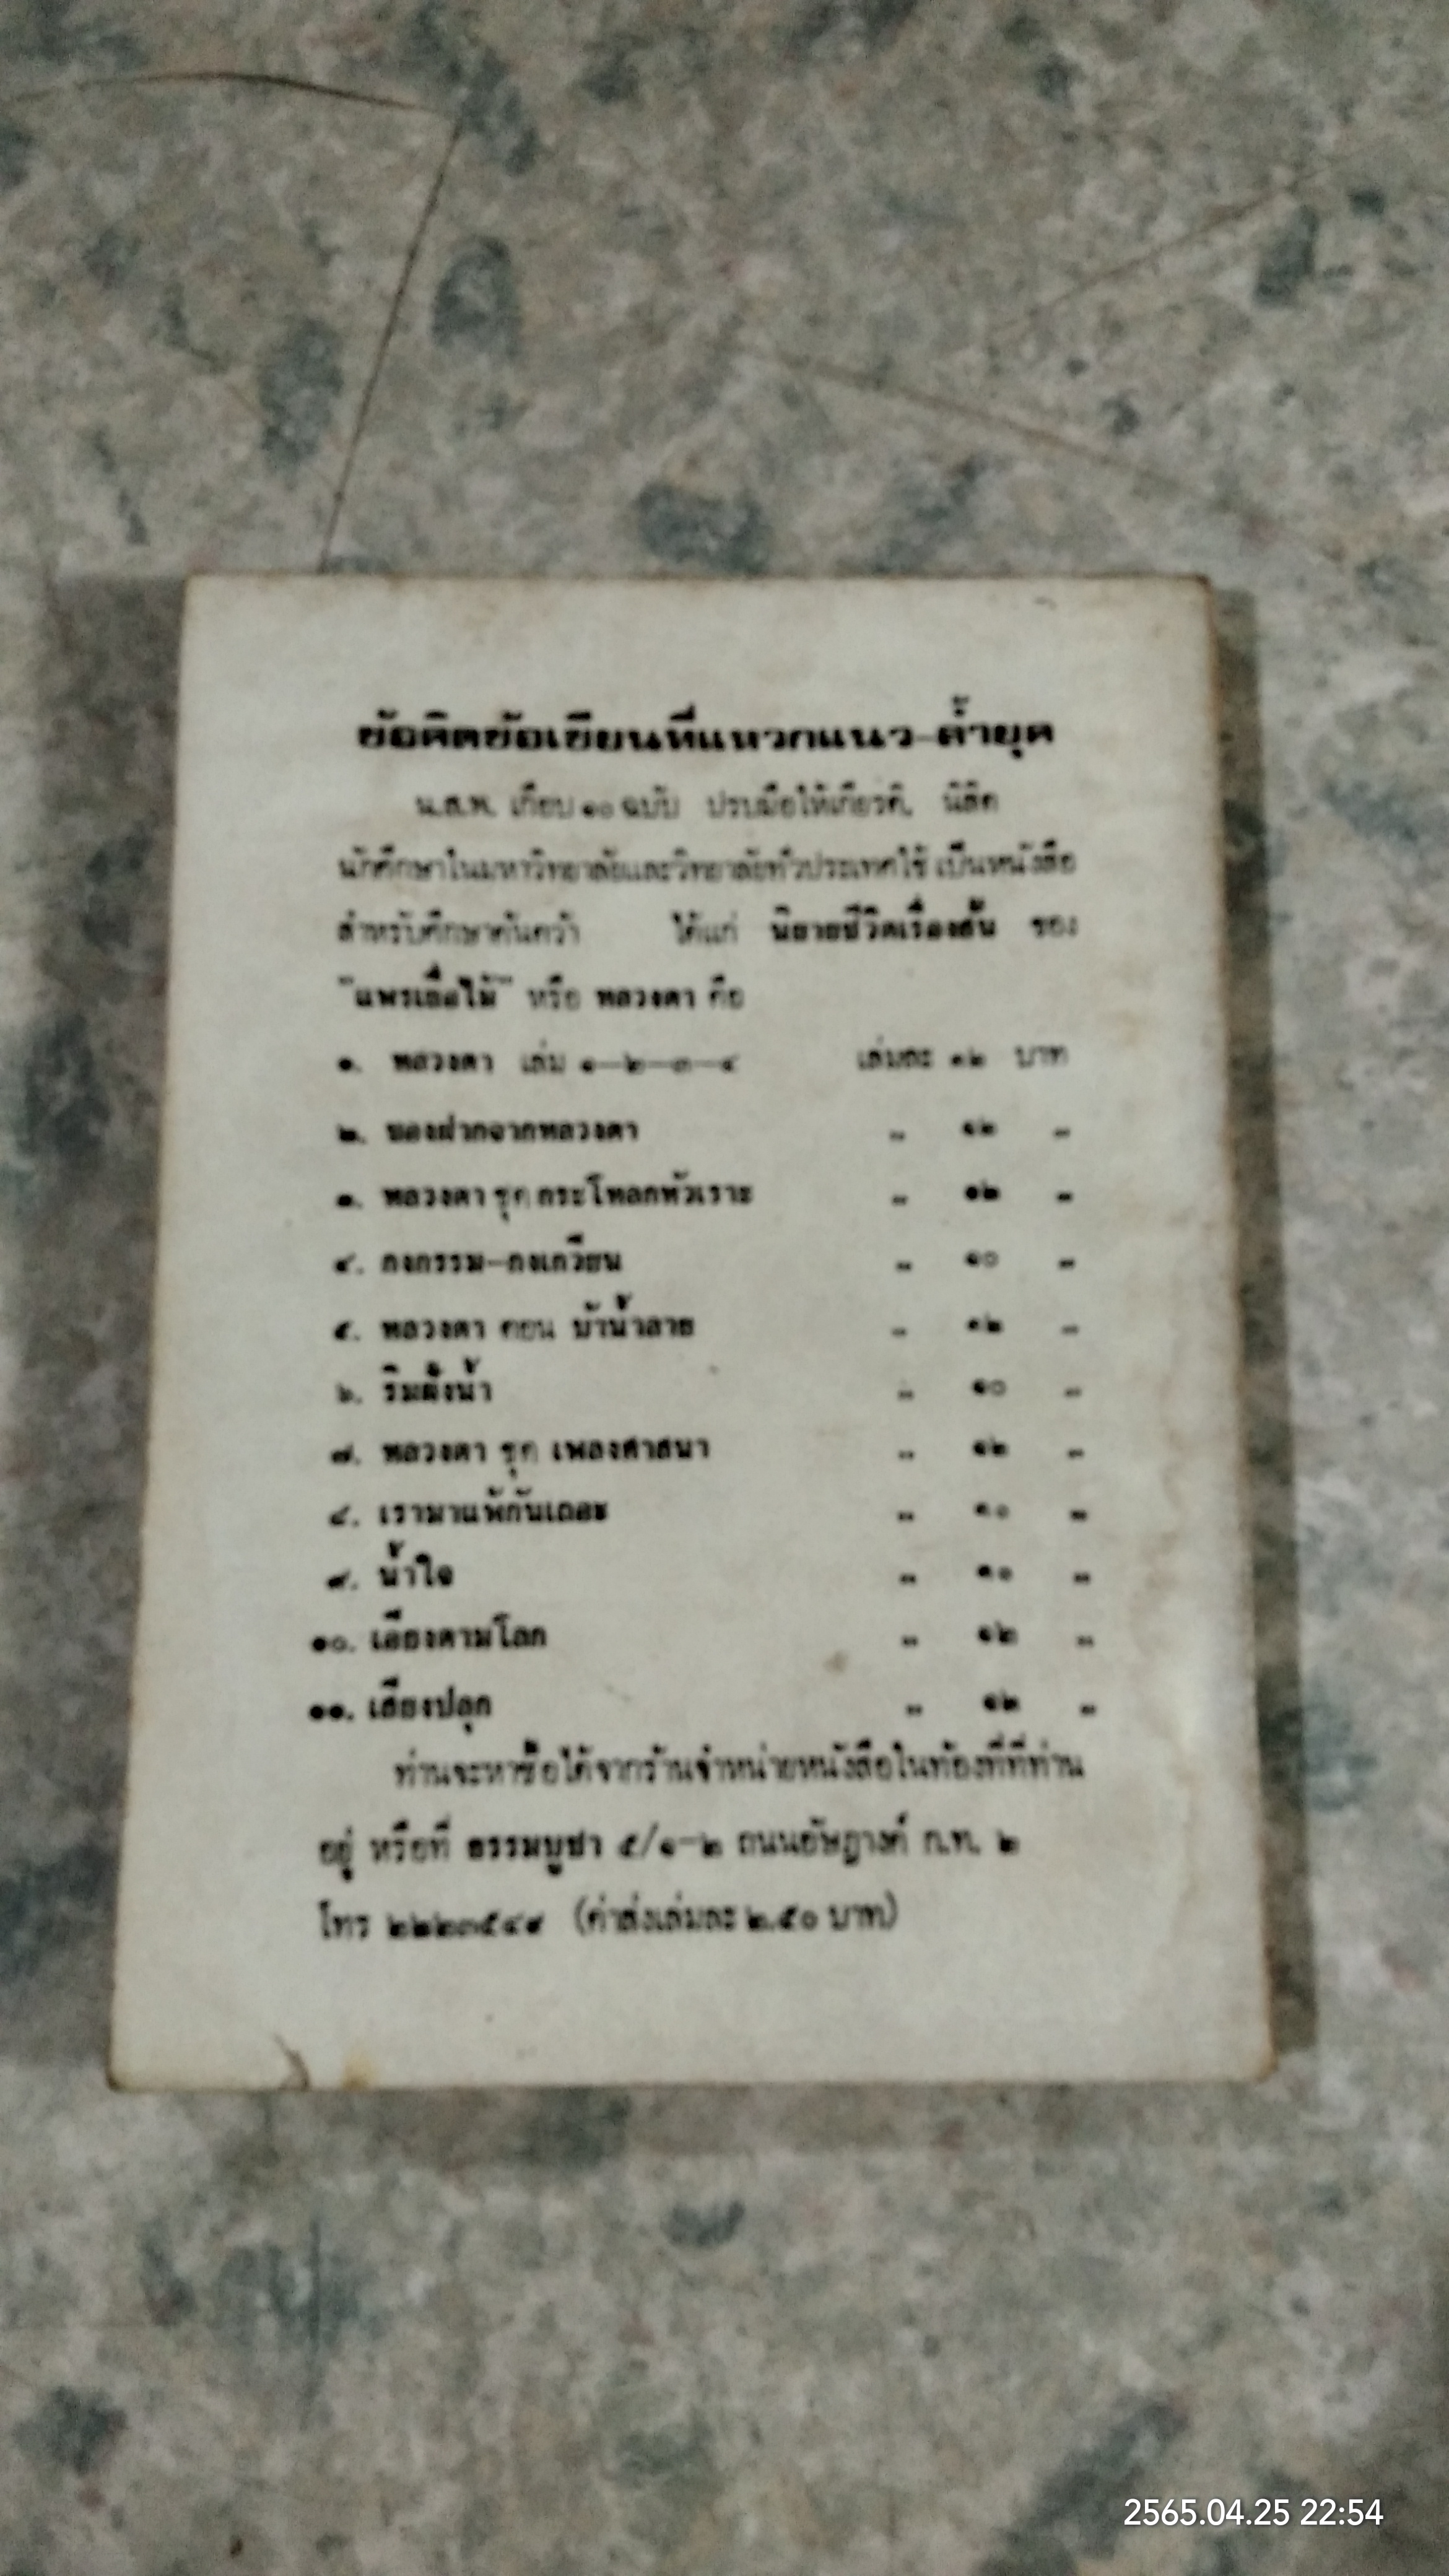 ข้อคิดข้อเขียนที่แหวกแนว-ล้ำยุค
น.ส.พ. เกือบ ๑๐ ฉบับ ปรบมือให้เกียรติ. นิสิต
นักศึกษาในมหาวิทยาลัยและวิทยาลัยทั่วประเทศใช้ เป็นหนังสือ
สำหรับศึกษาค้นคว้า ได้แก่ นิยายชีวิตเรื่องสั้น ของ
"แพรเยื่อไม้" หรือ หลวงตา คือ
๑. หลวงตา เล่ม ๑—๒—๓—๔ เล่มละ ๑๒ บาท
๒. ของฝากจากหลวงตา ,, ๑๒ ,,
๓. หลวงตา ชุด กระโหลกหัวเราะ ,, ๑๒ ,,
๔. กงกรรม—กงเกวียน ,, ๑๐ ,,
๕. หลวงตา ตอน บ้าน้ำลาย ,, ๑๒ ,,
๖. ริมฝั่งน้ำ ,, ๑๐ ,,
๗. หลวงตา ชุด เพลงศาสนา ,, ๑๒ ,,
๘. เรามาแพ้กันเถอะ ,, ๑๐ ,,
๙. น้ำใจ ,, ๑๐ ,,
๑๐. เอียงตามโลก ,, ๑๒ ,,
๑๑. เสียงปลุก ,, ๑๒ ,,
ท่านจะหาซื้อได้จากร้านจำหน่ายหนังสือในท้องที่ที่ท่าน
อยู่ หรือที่ ธรรมบูชา ๕/๑-๒ ถนนอัษฎางค์ ก.ท. ๒
โทร ๒๒๒๓๕๔๙ (ค่าส่งเล่มละ ๒.๕๐ บาท)
2565.04.25 22:54